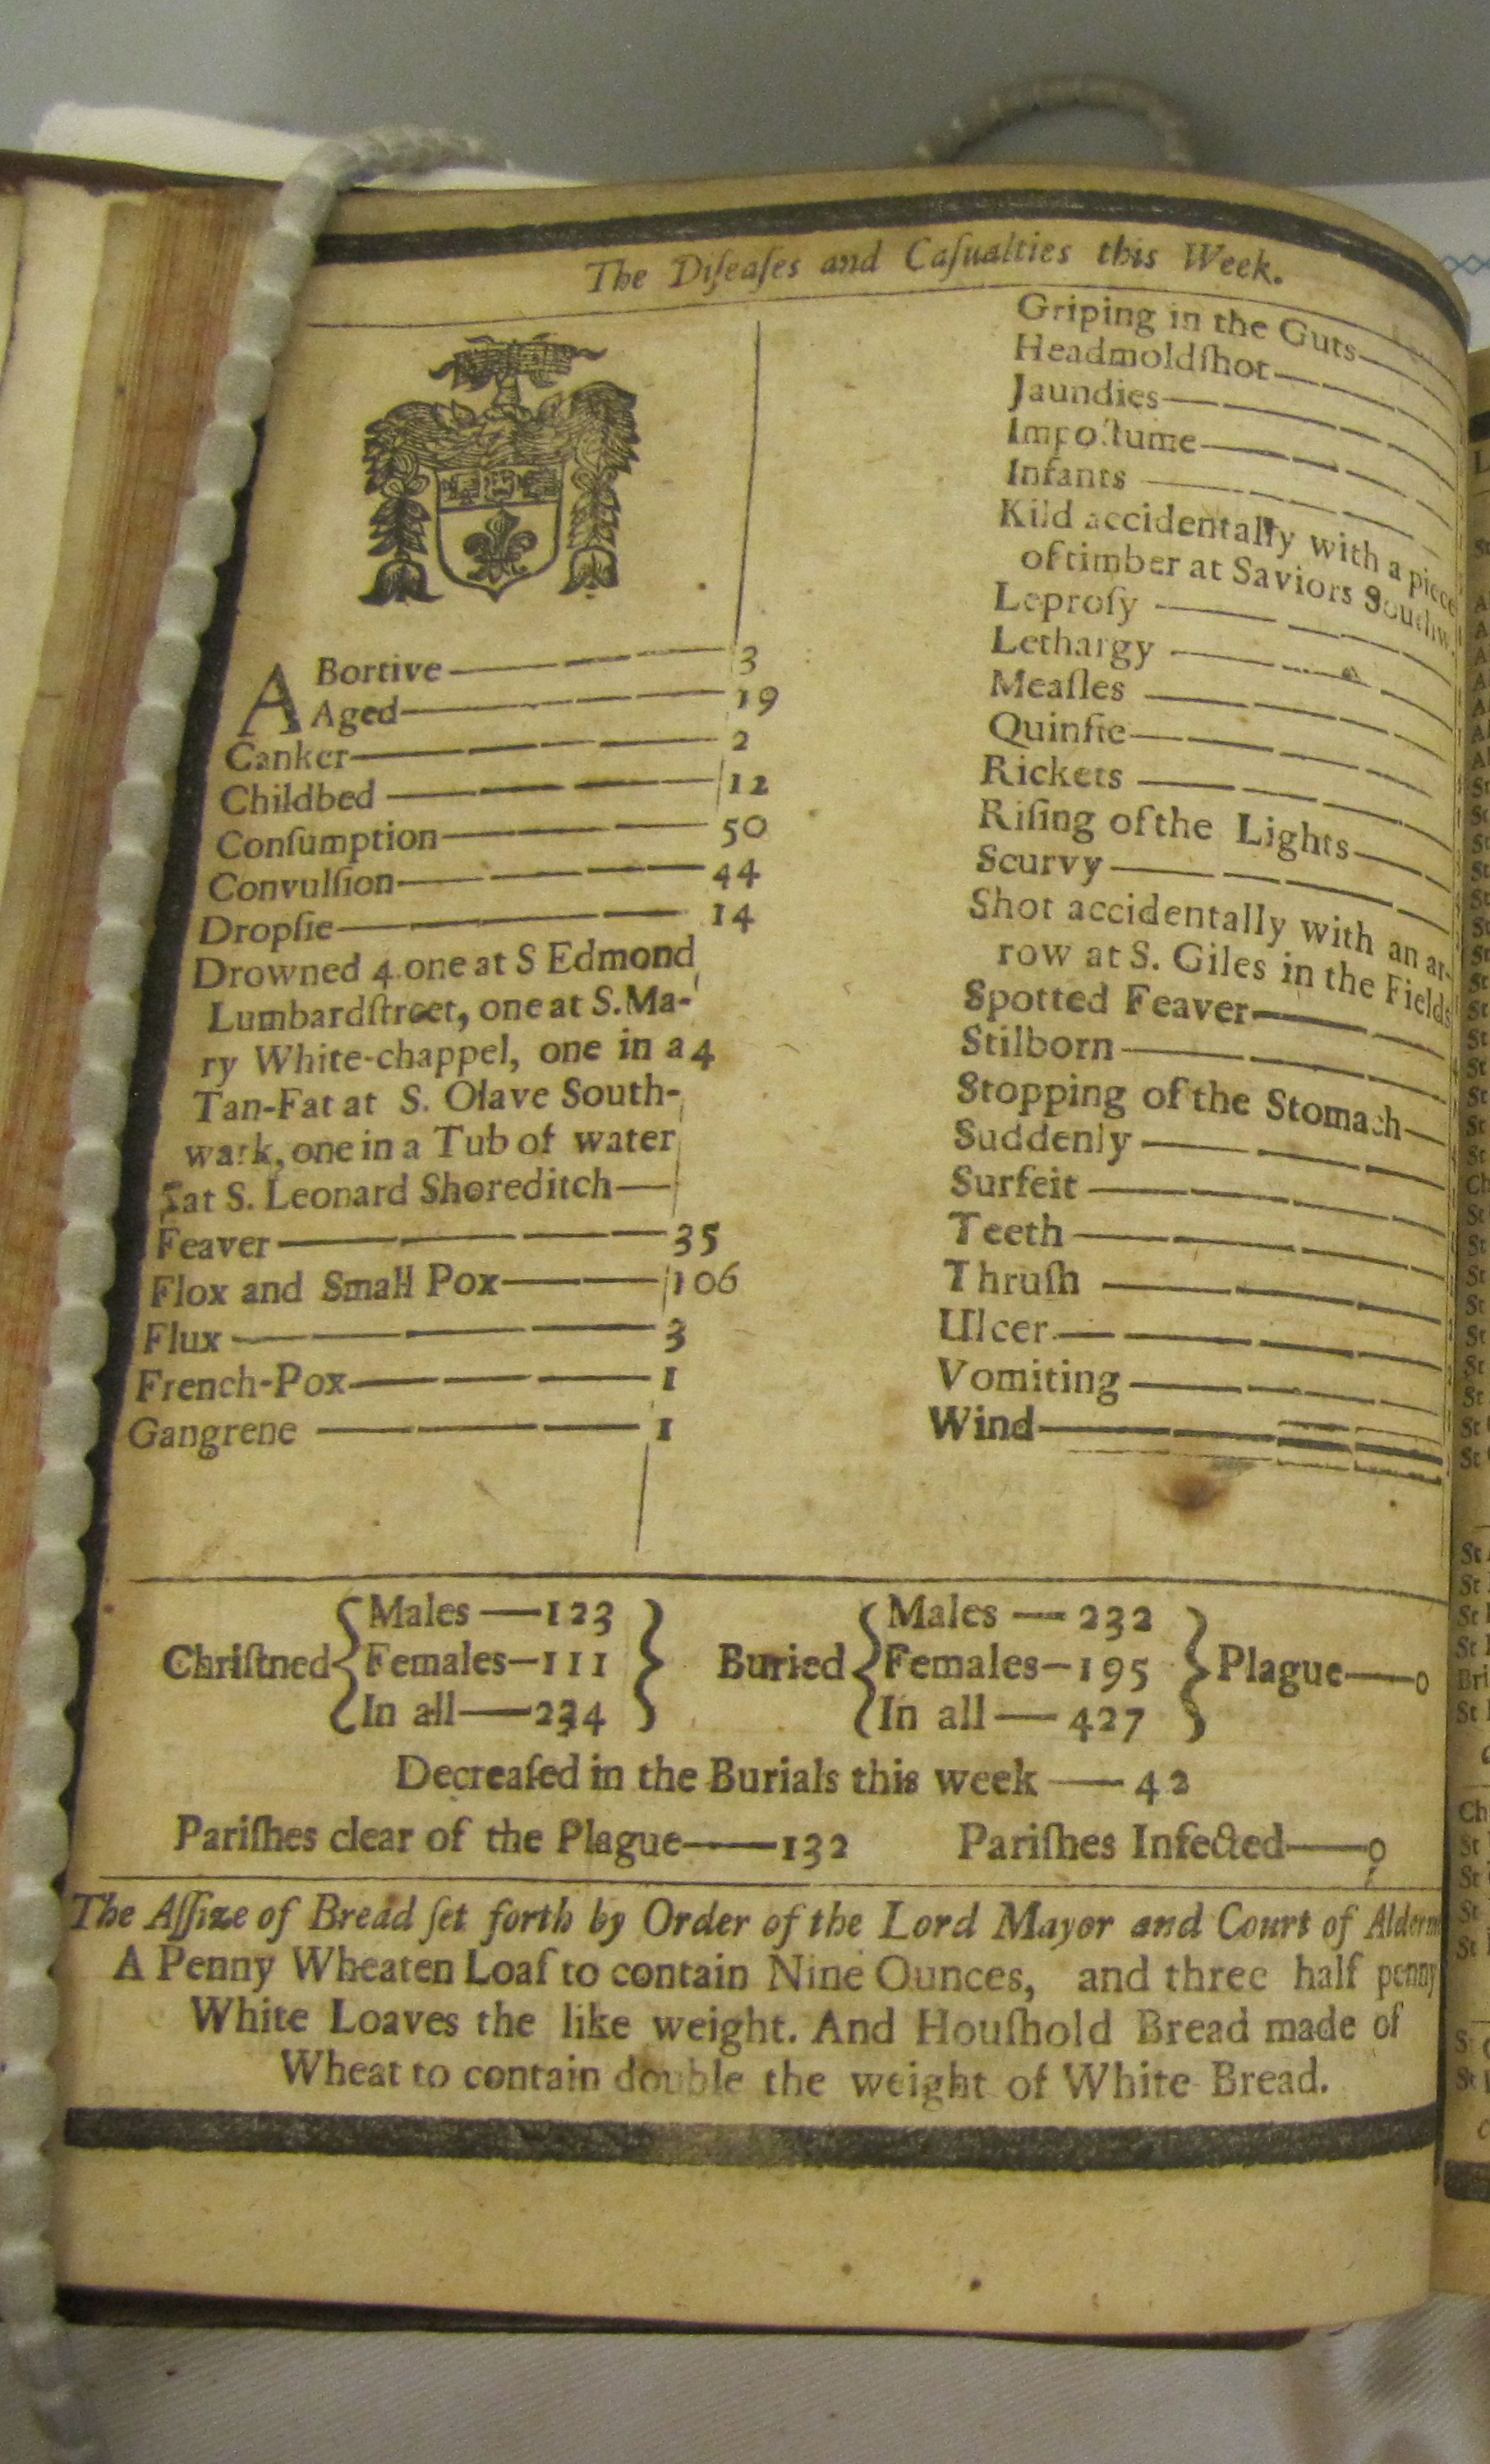 The Diſeaſes and Caſualties this Week.
ABortive 3
Aged 19
Canker 2
Childbed 12
Conſumption 50
Convulſion 44
Dropſie 14
Drowned 4 one at S Edmond
Lumbardſtreet, one at S. Ma-
ry White-chappel, one in a 4
Tan-Fat at S. Olave South-
wark, one in a Tub of water
at S. Leonard Shoreditch
Feaver 35
Flox and Small Pox 106
Flux 3
French-Pox 1
Gangrene 1
Griping in the Guts
Headmoldſhot
Jaundies
Impoſtume
Infants
Kild accidentally with a piece
of timber at Saviors Southw
Leproſy
Lethargy
Meaſles
Quinſie
Rickets
Riſing of the Lights
Scurvy
Shot accidentally with an ar-
row at S. Giles in the Fields
Spotted Feaver
Stilborn
Stopping of the Stomach
Suddenly
Surfeit
Teeth
Thruſh
Ulcer
Vomiting
Wind
Males — 123
Chriſtned Females — 111
In all — 234
Males — 232
Buried Females — 195
In all — 427
Plague — 0
Decreaſed in the Burials this week — 42
Pariſhes clear of the Plague — 132 Pariſhes Infected — 0
The Aſſize of Bread ſet forth by Order of the Lord Mayor and Court of Alderm
A Penny Wheaten Loaf to contain Nine Ounces, and three half penny
White Loaves the like weight. And Houſhold Bread made of
Wheat to contain double the weight of White Bread.